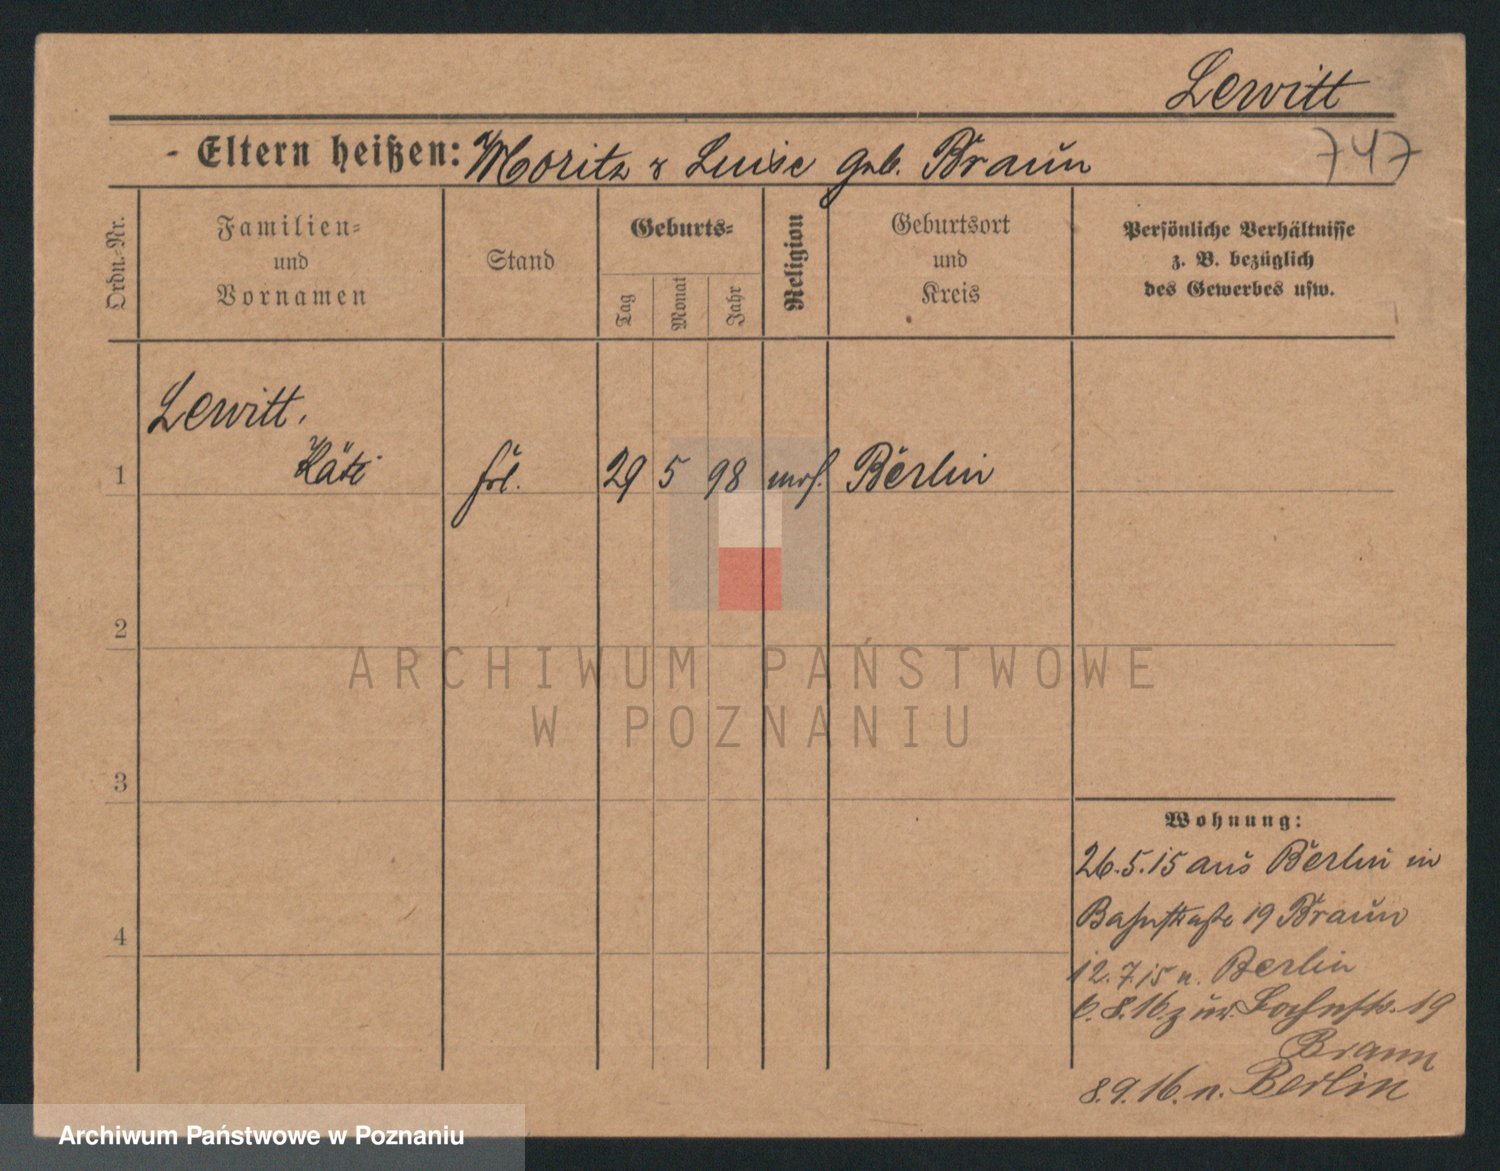 Lewitt
747
- Eltern heißen: Moritz & Luise geb. Braun
Ordn.-Nr.
Familien-
und
Vornamen
Stand
Geburts-
Tag
Monat
Jahr
Religion
Geburtsort
und
Kreis
Persönliche Verhältnisse
z. B. bezüglich
des Gewerbes usw.
Lewitt,
1 Käte frl. 29 5 98 mos. Berlin
2
3
4
ARCHIWUM PAŃSTWOWE
W POZNANIU
Wohnung:
26.5.15 aus Berlin in
Bahnstraße 19 Braun
12.7.15 n. Berlin
6.8.16 zur. Bahnstr. 19
Braun
8.9.16. n. Berlin
Archiwum Państwowe w Poznaniu